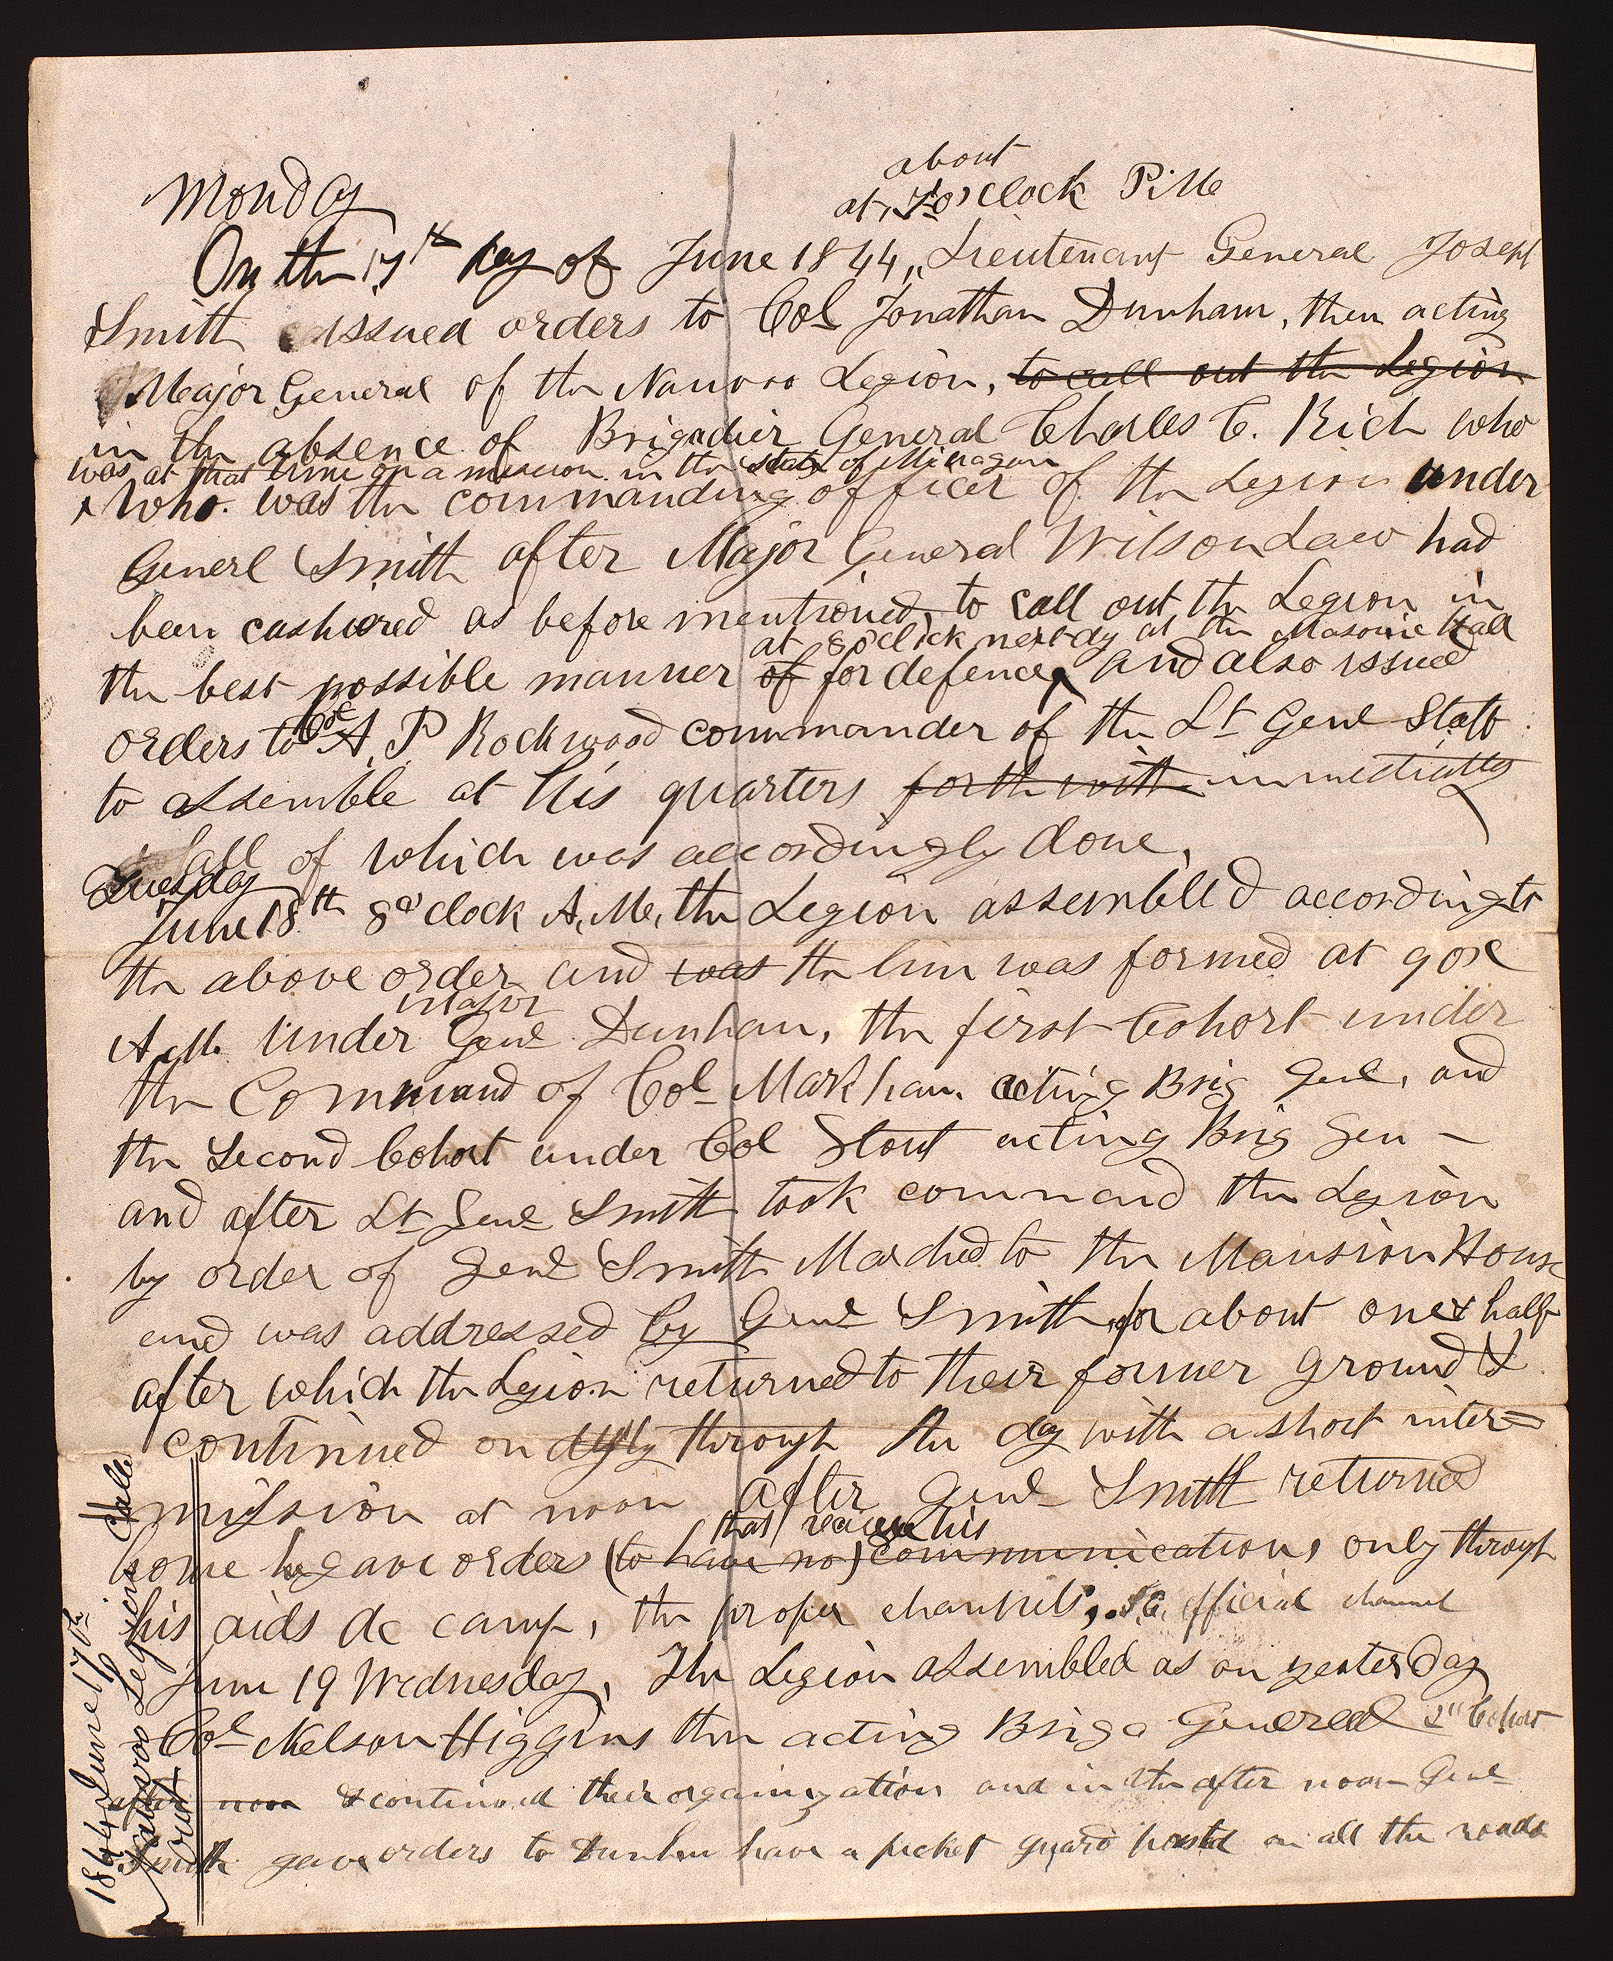 about
Monday
at, 7 o'clock P. M.
On the 17th day of June 1844, Lieutenant General Joseph
Smith issued orders to Col Jonathan Dunham, then acting
Major General of the Nauvoo Legion, to call out the Legion
in the absence of Brigadier General Charles C. Rich who
was at that time on a mission in the state of Michagan
& who was the commanding officer of the Legion under
Generl Smith after Major General Wilson Law had
been cashiered as before mentioned, to call out the Legion in
at 8 o'clock next dy at the Masonic Hall
the best possible manner of for defence, and also issued
orders to Col A. P Rockwood commander of the Lt Genl Staff
to assemble at his quarters forthwith immediatly
all of which was accordingly done,
Tuesday
June 18th 8 o'clock A, M, the Legion assembled according to
the above order and was the line was formed at 9 o,c
Major
A, M. under Genl Dunham, the first Cohort under
the Command of Col Markham acting Brig Genl, and
the Second Cohort under Col Stout acting Brig Gen –
and after Lt Genl Smith took command the Legion
by order of Genl Smith Marched to the Mansion House
and was addressed by Genl Smith for about one & half
after which the Legion returned to their former ground &
continued on duty through the day with a short inter=
mission at noon after Genl Smith returned
that receive his
home he gave orders (to have no) communications only through
his aids de camp, the proper channels, official channel
June 19 Wednesday, The Legion assembled as on yesterday
Col Nelson Higgins then acting Brig General 2nd Cohort
after noon & continued their organization and in the after noon Genl
Smith gave orders to Dunham have a picket guard posted on all the roads
1844 June 17th
Nauvoo Legion called
out